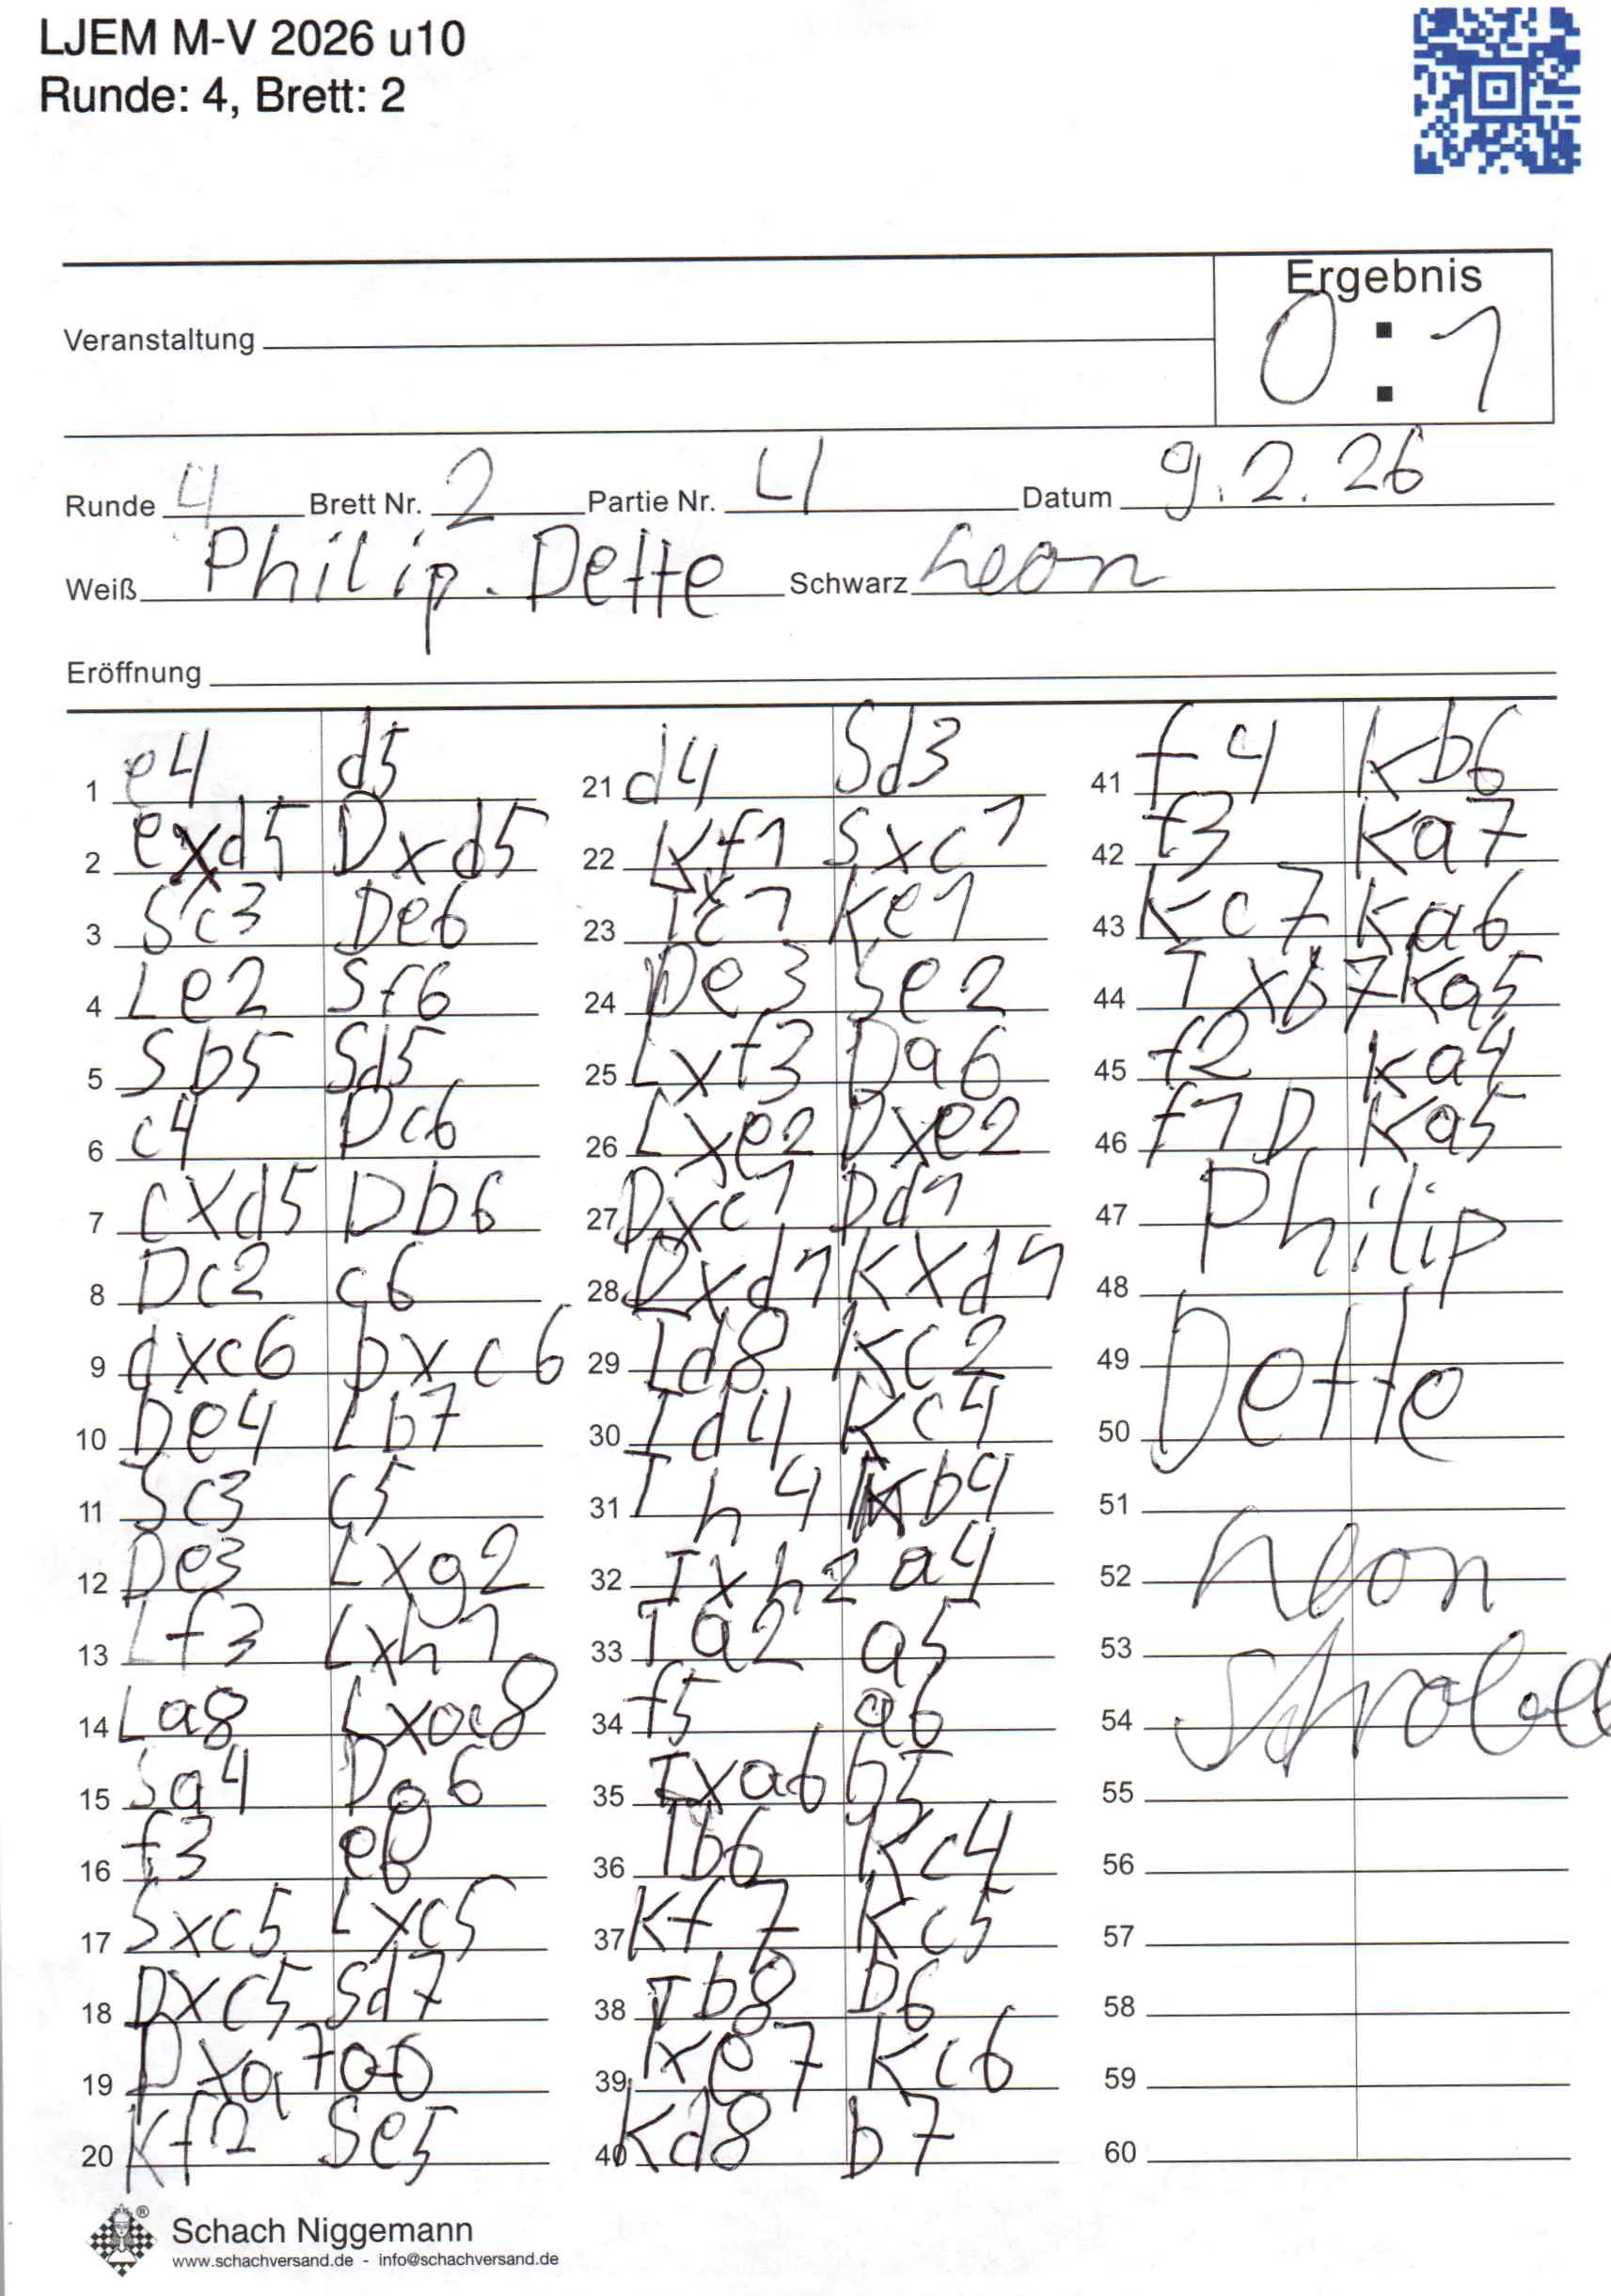 LJEM M-V 2026 u10
Runde: 4, Brett: 2
Ergebnis
0 : 1
Veranstaltung
Runde 4 Brett Nr. 2 Partie Nr. 4 Datum 9.2.26
Weiß Philip. Dette Schwarz Leon
Eröffnung
1 e4 d5
2 exd5 Dxd5
3 Sc3 De6
4 Le2 Sf6
5 Sb5 Sd5
6 c4 Dc6
7 cxd5 Db6
8 Dc2 c6
9 dxc6 bxc6
10 De4 Lb7
11 Sc3 c5
12 De3 Lxg2
13 Lf3 Lxh1
14 La8 Lxa8
15 Sa4 Dg6
16 f3 e6
17 Sxc5 Lxc5
18 Dxc5 Sd7
19 Dxa7 0-0
20 Kf2 Se5
21 d4 Sd3
22 Kf1 Sxc1
23 Txc1 Ke1
24 De3 Se2
25 Lxf3 Da6
26 Lxe2 Dxe2
27 Dxc1 Dd1
28 Dxd1 Kxd1
29 Td8 Kc2
30 Td4 Kc4
31 Th4 Kb4
32 Txh2 a4
33 Ta2 a5
34 f5 a6
35 Txa6 b5
36 Tb6 Kc4
37 Kf7 Kc5
38 Tb8 b6
39 Kxe7 Kc6
40 Kd8 b7
41 f4 Kb6
42 f3 Ka7
43 Kc7 Ka6
44 Txb7 Ka5
45 f2 Ka4
46 f1D Ka5
47 Philip
48
49 Dette
50
51
52 Leon
53
54
55
56
57
58
59
60
Schach Niggemann
www.schachversand.de - info@schachversand.de